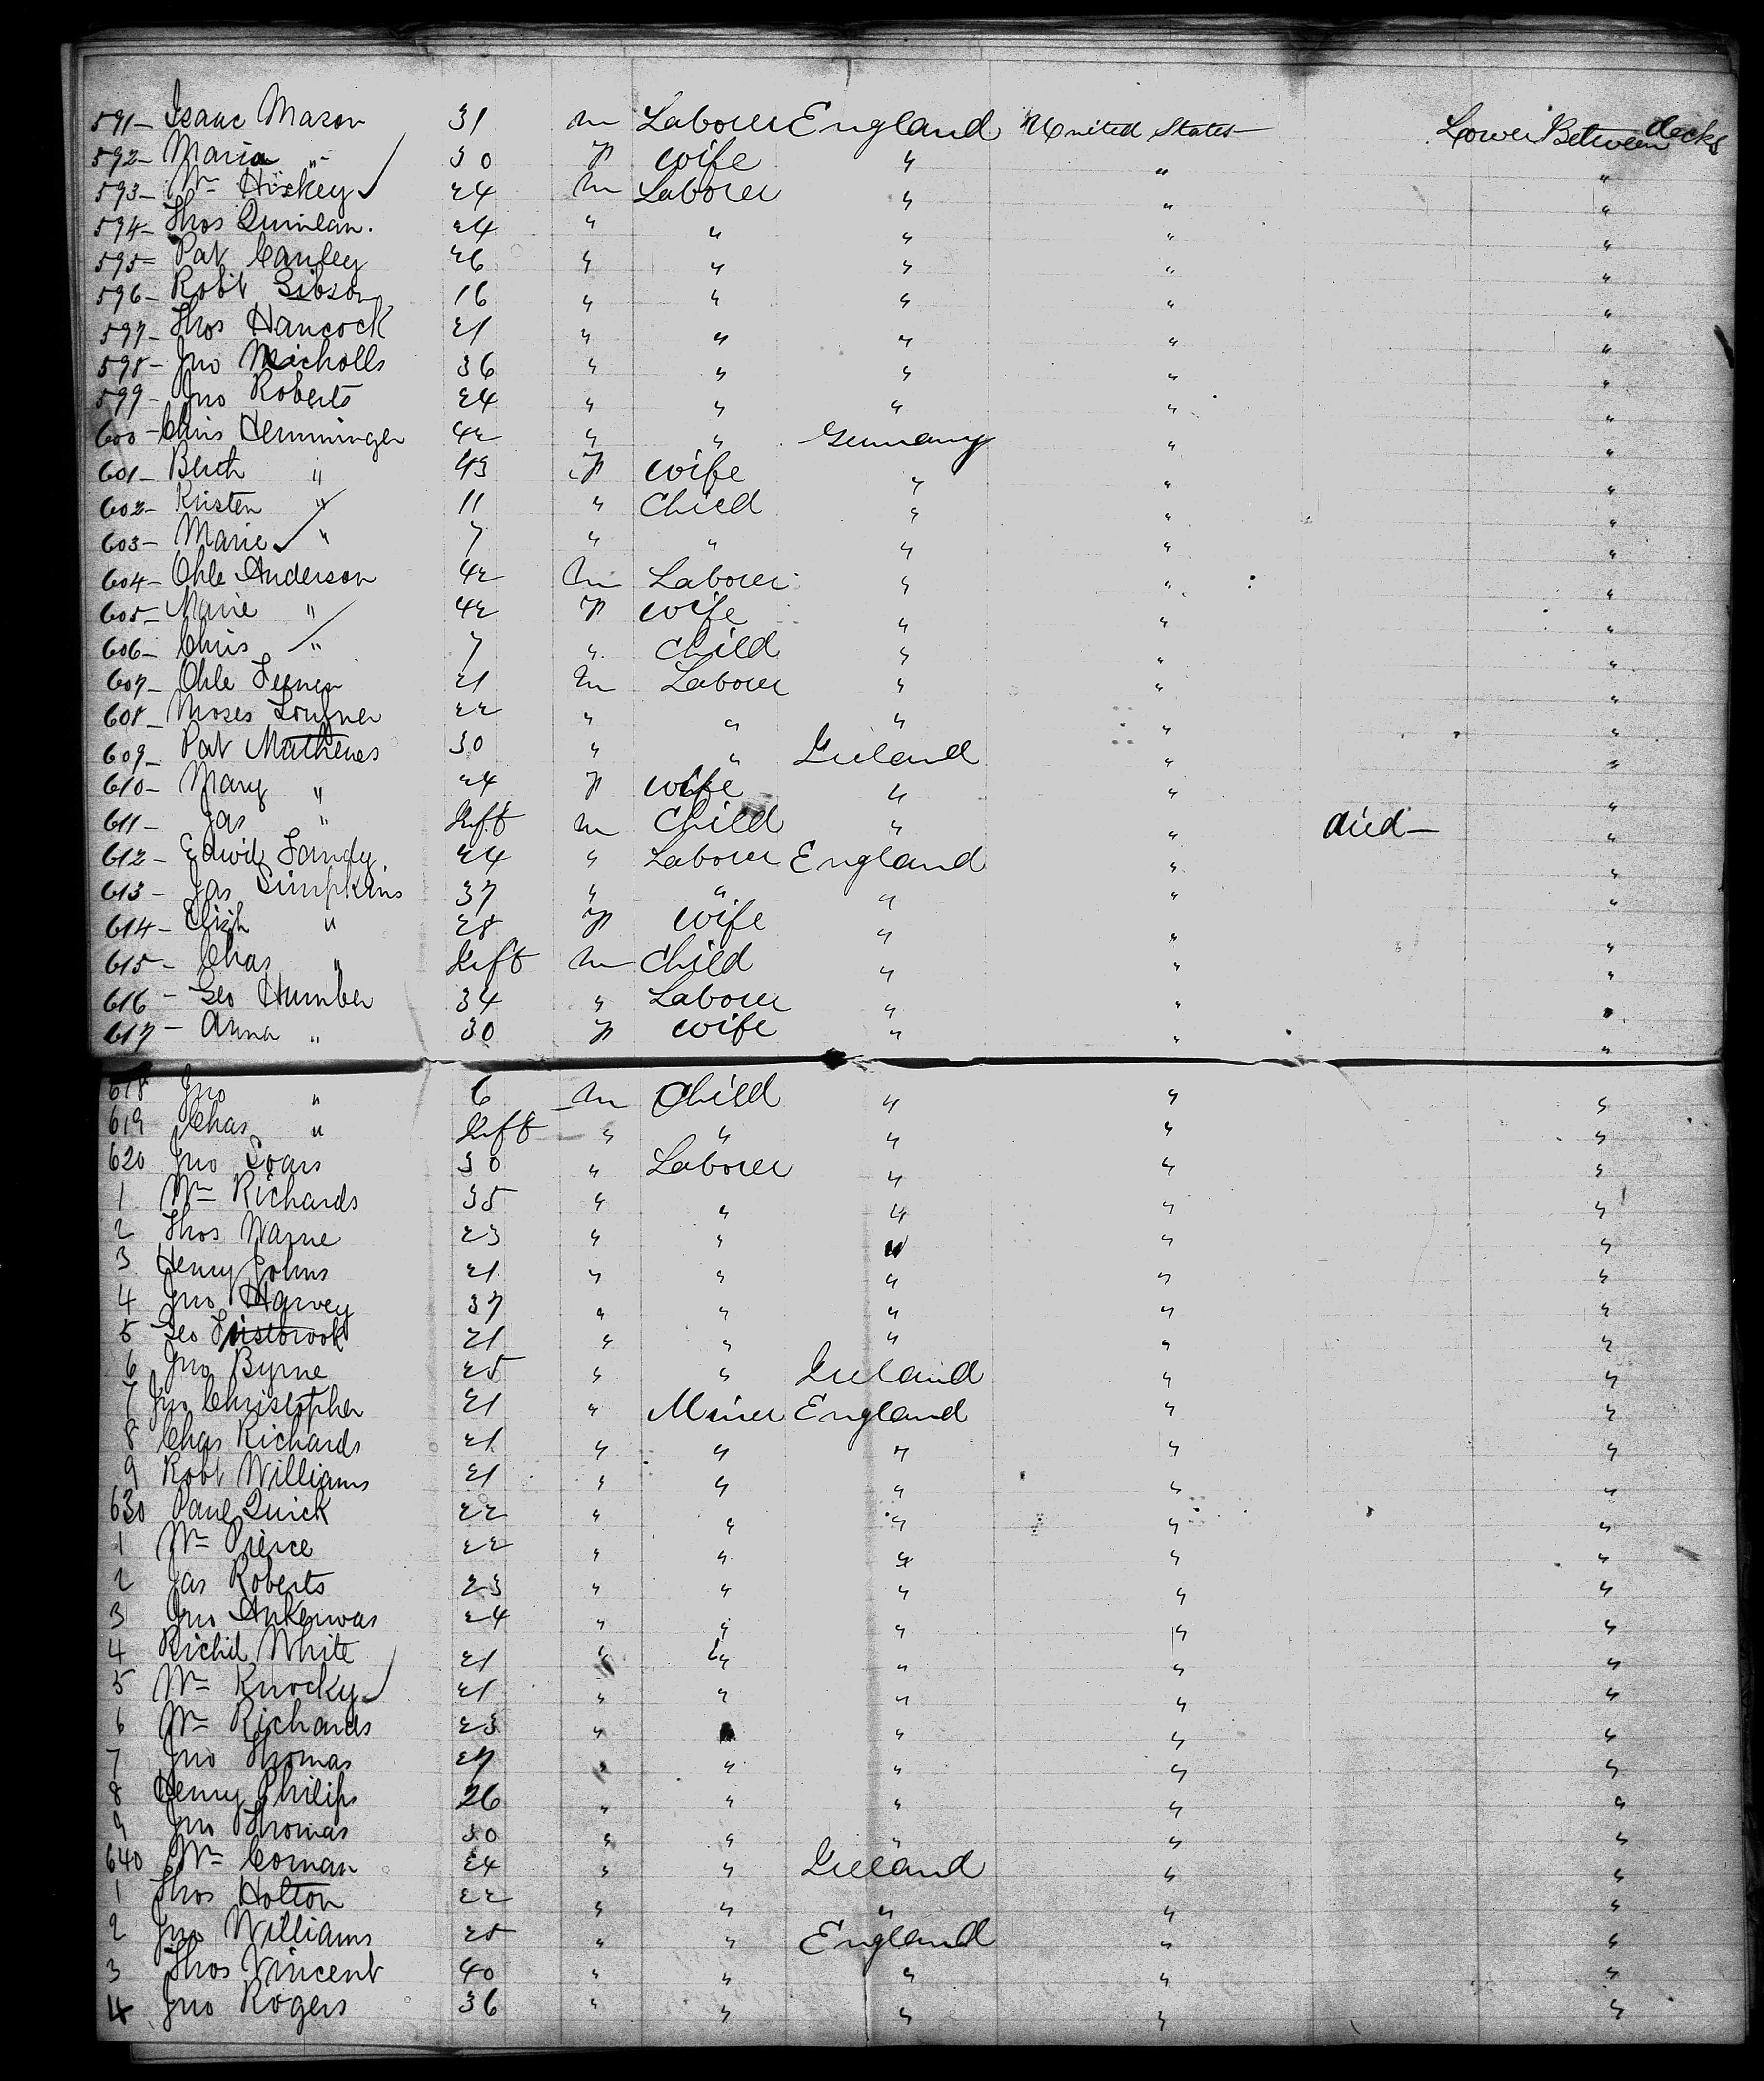 591 — Isaac Mason 31 m Laborer England United States Lower Between decks
592 - Maria " 30 F wife " " "
593 - Wm Hickey 24 m Laborer " " "
594 - Thos Quinlan. 24 " " " " "
595 = Pat Canfey 26 " " " " "
596 - Robt Gibson 16 " " " " "
597 - Thos Hancock 21 " " " " "
598 - Jno Nicholls 36 " " " " "
599 - Jno Roberts 24 " " " " "
600 - Chris Hemminger 42 " " Germany " "
601 - Berth " 43 F wife " " "
602 - Kristen " 11 " Child " " "
603 - Marie " 7 " " " " "
604 - Ohle Anderson 42 m Laborer " " "
605 - Marie " 42 F wife " " "
606 - Chris " 7 " Child " " "
607 - Ohle 21 m Laborer " " "
608 - Moses 22 " " " " "
609 - Pat Mathews 30 " " Ireland " "
610 - Mary " 24 F wife " " "
611 - Jas " Inft m Child " " died — "
612 - Edwd 24 " Laborer England " "
613 - Jas Simpkins 37 " " " " "
614 - Elizh " 28 F wife " " "
615 - Chas " Inft m Child " " "
616 - Geo Humber 34 " Laborer " " "
617 - Anna " 30 F wife " " "
618 Jno " 6 m Child " " "
619 Chas " Inft " " " " "
620 Jno Soars 30 " Laborer " " "
1 Wm Richards 35 " " " " "
2 Thos Warne 23 " " " " "
3 Henry Johns 21 " " " " "
4 Jno Harvey 37 " " " " "
5 Geo 21 " " " " "
6 Jno Byrne 25 " " Ireland " "
7 Jno Christopher 21 " Miner England " "
8 Chas Richards 21 " " " " "
9 Robt Williams 21 " " " " "
630 Paul Quick 22 " " " " "
1 Wm Pierce 22 " " " " "
2 Jas Roberts 23 " " " " "
3 Jno Ankerwas 24 " " " " "
4 Richd White 21 " " " " "
5 Wm Knocky 21 " " " " "
6 Wm Richards 23 " " " " "
7 Jno Thomas 27 " " " " "
8 Henry Philips 26 " " " " "
9 Jno Thomas 30 " " " " "
640 Wm Coman 24 " " Ireland " "
1 Thos Holton 22 " " " " "
2 Jno Williams 25 " " England " "
3 Thos Vincent 40 " " " " "
4 Jno Rogers 36 " " " " "